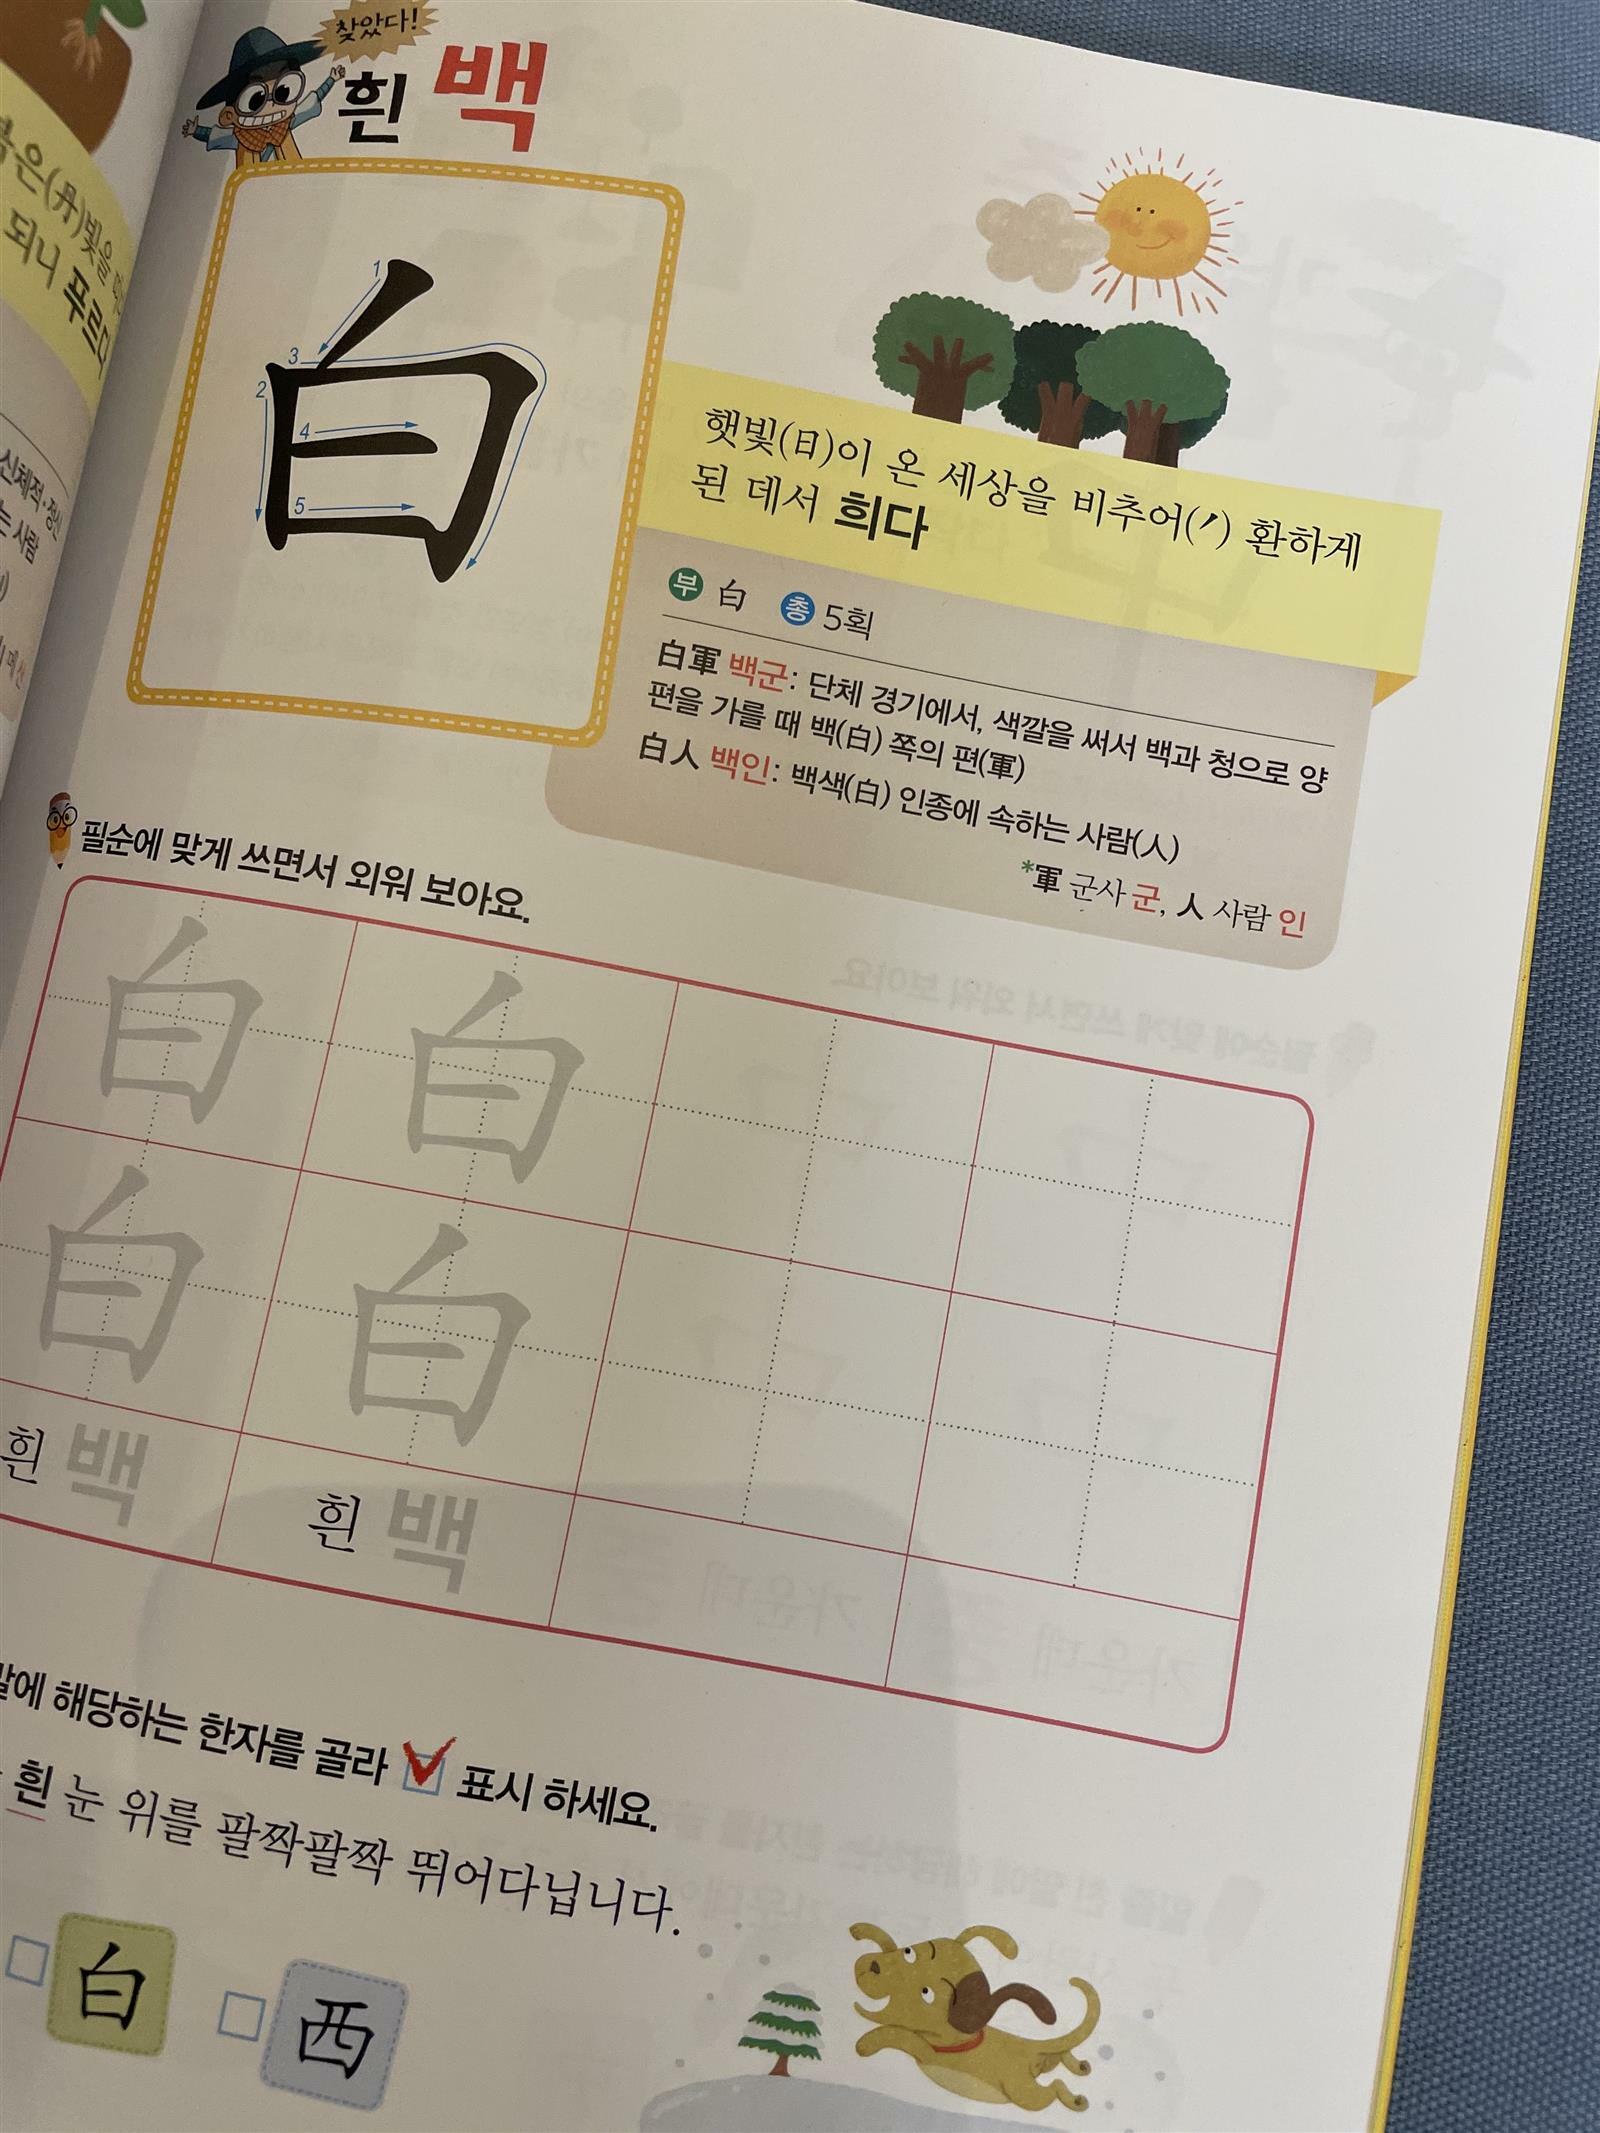 찾았다!
흰 백
은(丹)빛을
되니 푸르다
신체적·정신
는 사람
白
1
2
3
4
5
햇빛(日)이 온 세상을 비추어(丿) 환하게
된 데서 희다
부 白 총 5획
白軍 백군: 단체 경기에서, 색깔을 써서 백과 청으로 양
편을 가를 때 백(白) 쪽의 편(軍)
白人 백인: 백색(白) 인종에 속하는 사람(人)
*軍 군사 군, 人 사람 인
필순에 맞게 쓰면서 외워 보아요.
白 白
白 白
흰 백 흰 백
말에 해당하는 한자를 골라 표시 하세요.
흰 눈 위를 팔짝팔짝 뛰어다닙니다.
白 西